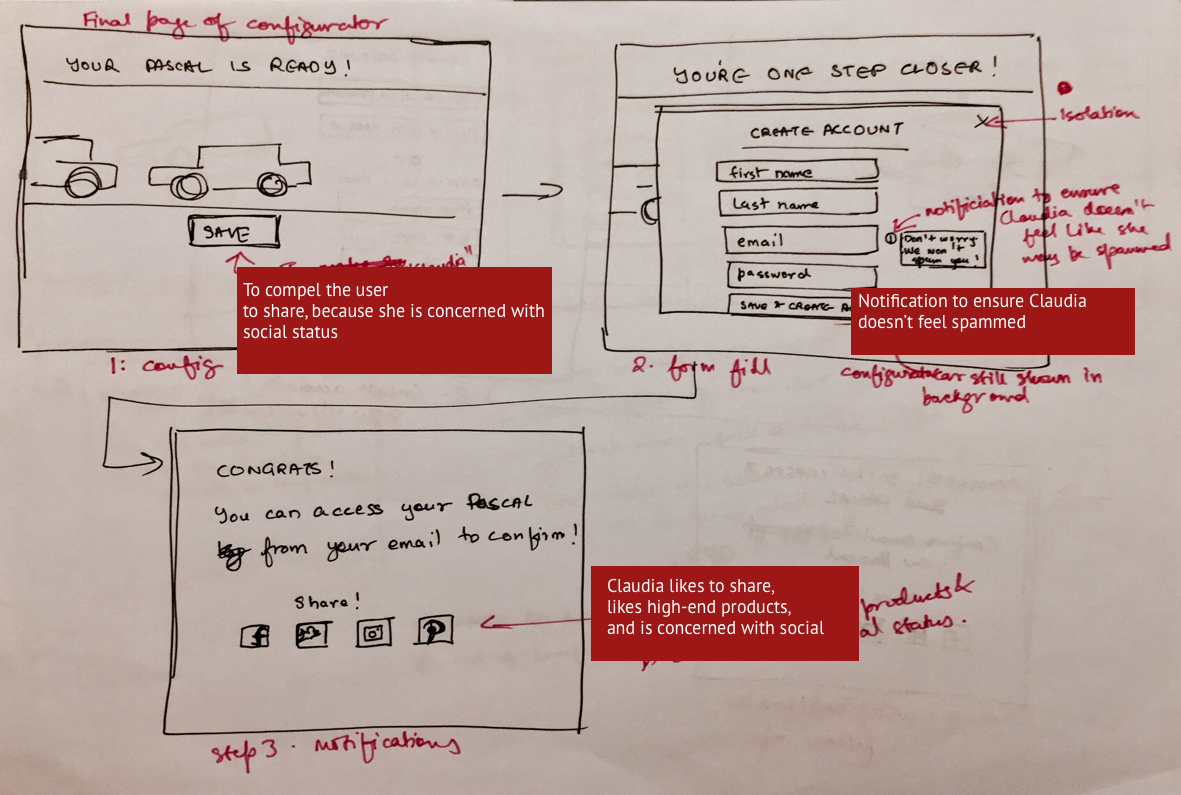 Final page of configurator
YOUR PASCAL IS READY!
SAVE
"Claudia"
To compel the user
to share, because she is concerned with
social status
1: config
YOU'RE ONE STEP CLOSER!
CREATE ACCOUNT
X
Isolation
first name
Last name
email
password
SAVE & CREATE
notificiation to ensure
Claudia doesn't
feel like she
may be spammed
Don't worry
we won't
spam you!
Notification to ensure Claudia
doesn't feel spammed
2. form fill
car still shown in
background
CONGRATS!
You can access your PASCAL
from your email to confirm!
Share!
Claudia likes to share,
likes high-end products,
and is concerned with social
products &
status.
step 3. notifications